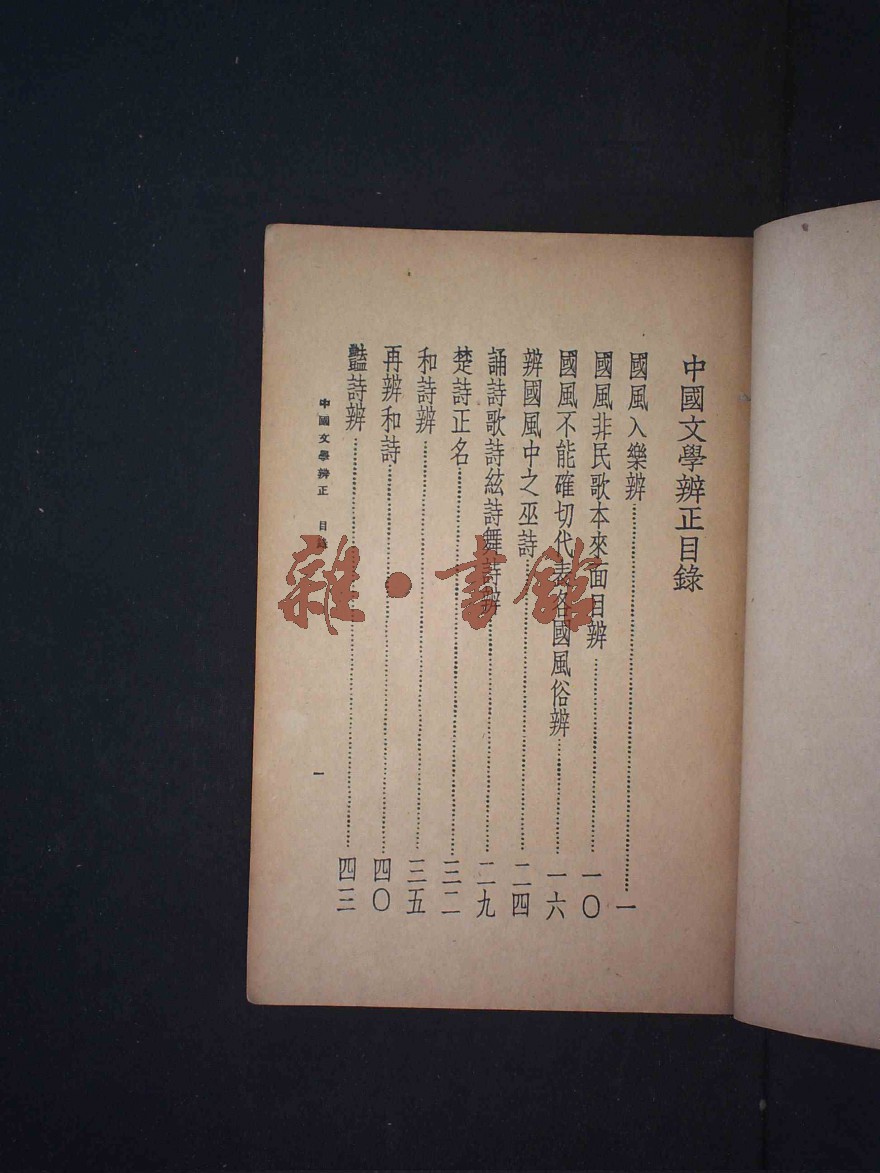 中國文學辨正目錄
國風入樂辨……一
國風非民歌本來面目辨……一〇
國風不能確切代表各國風俗辨……一六
辨國風中之巫詩……二四
誦詩歌詩絃詩舞詩辨……二九
楚詩正名……三二
和詩辨……三五
再辨和詩……四〇
豔詩辨……四三
中國文學辨正 目錄 一
雜·書館